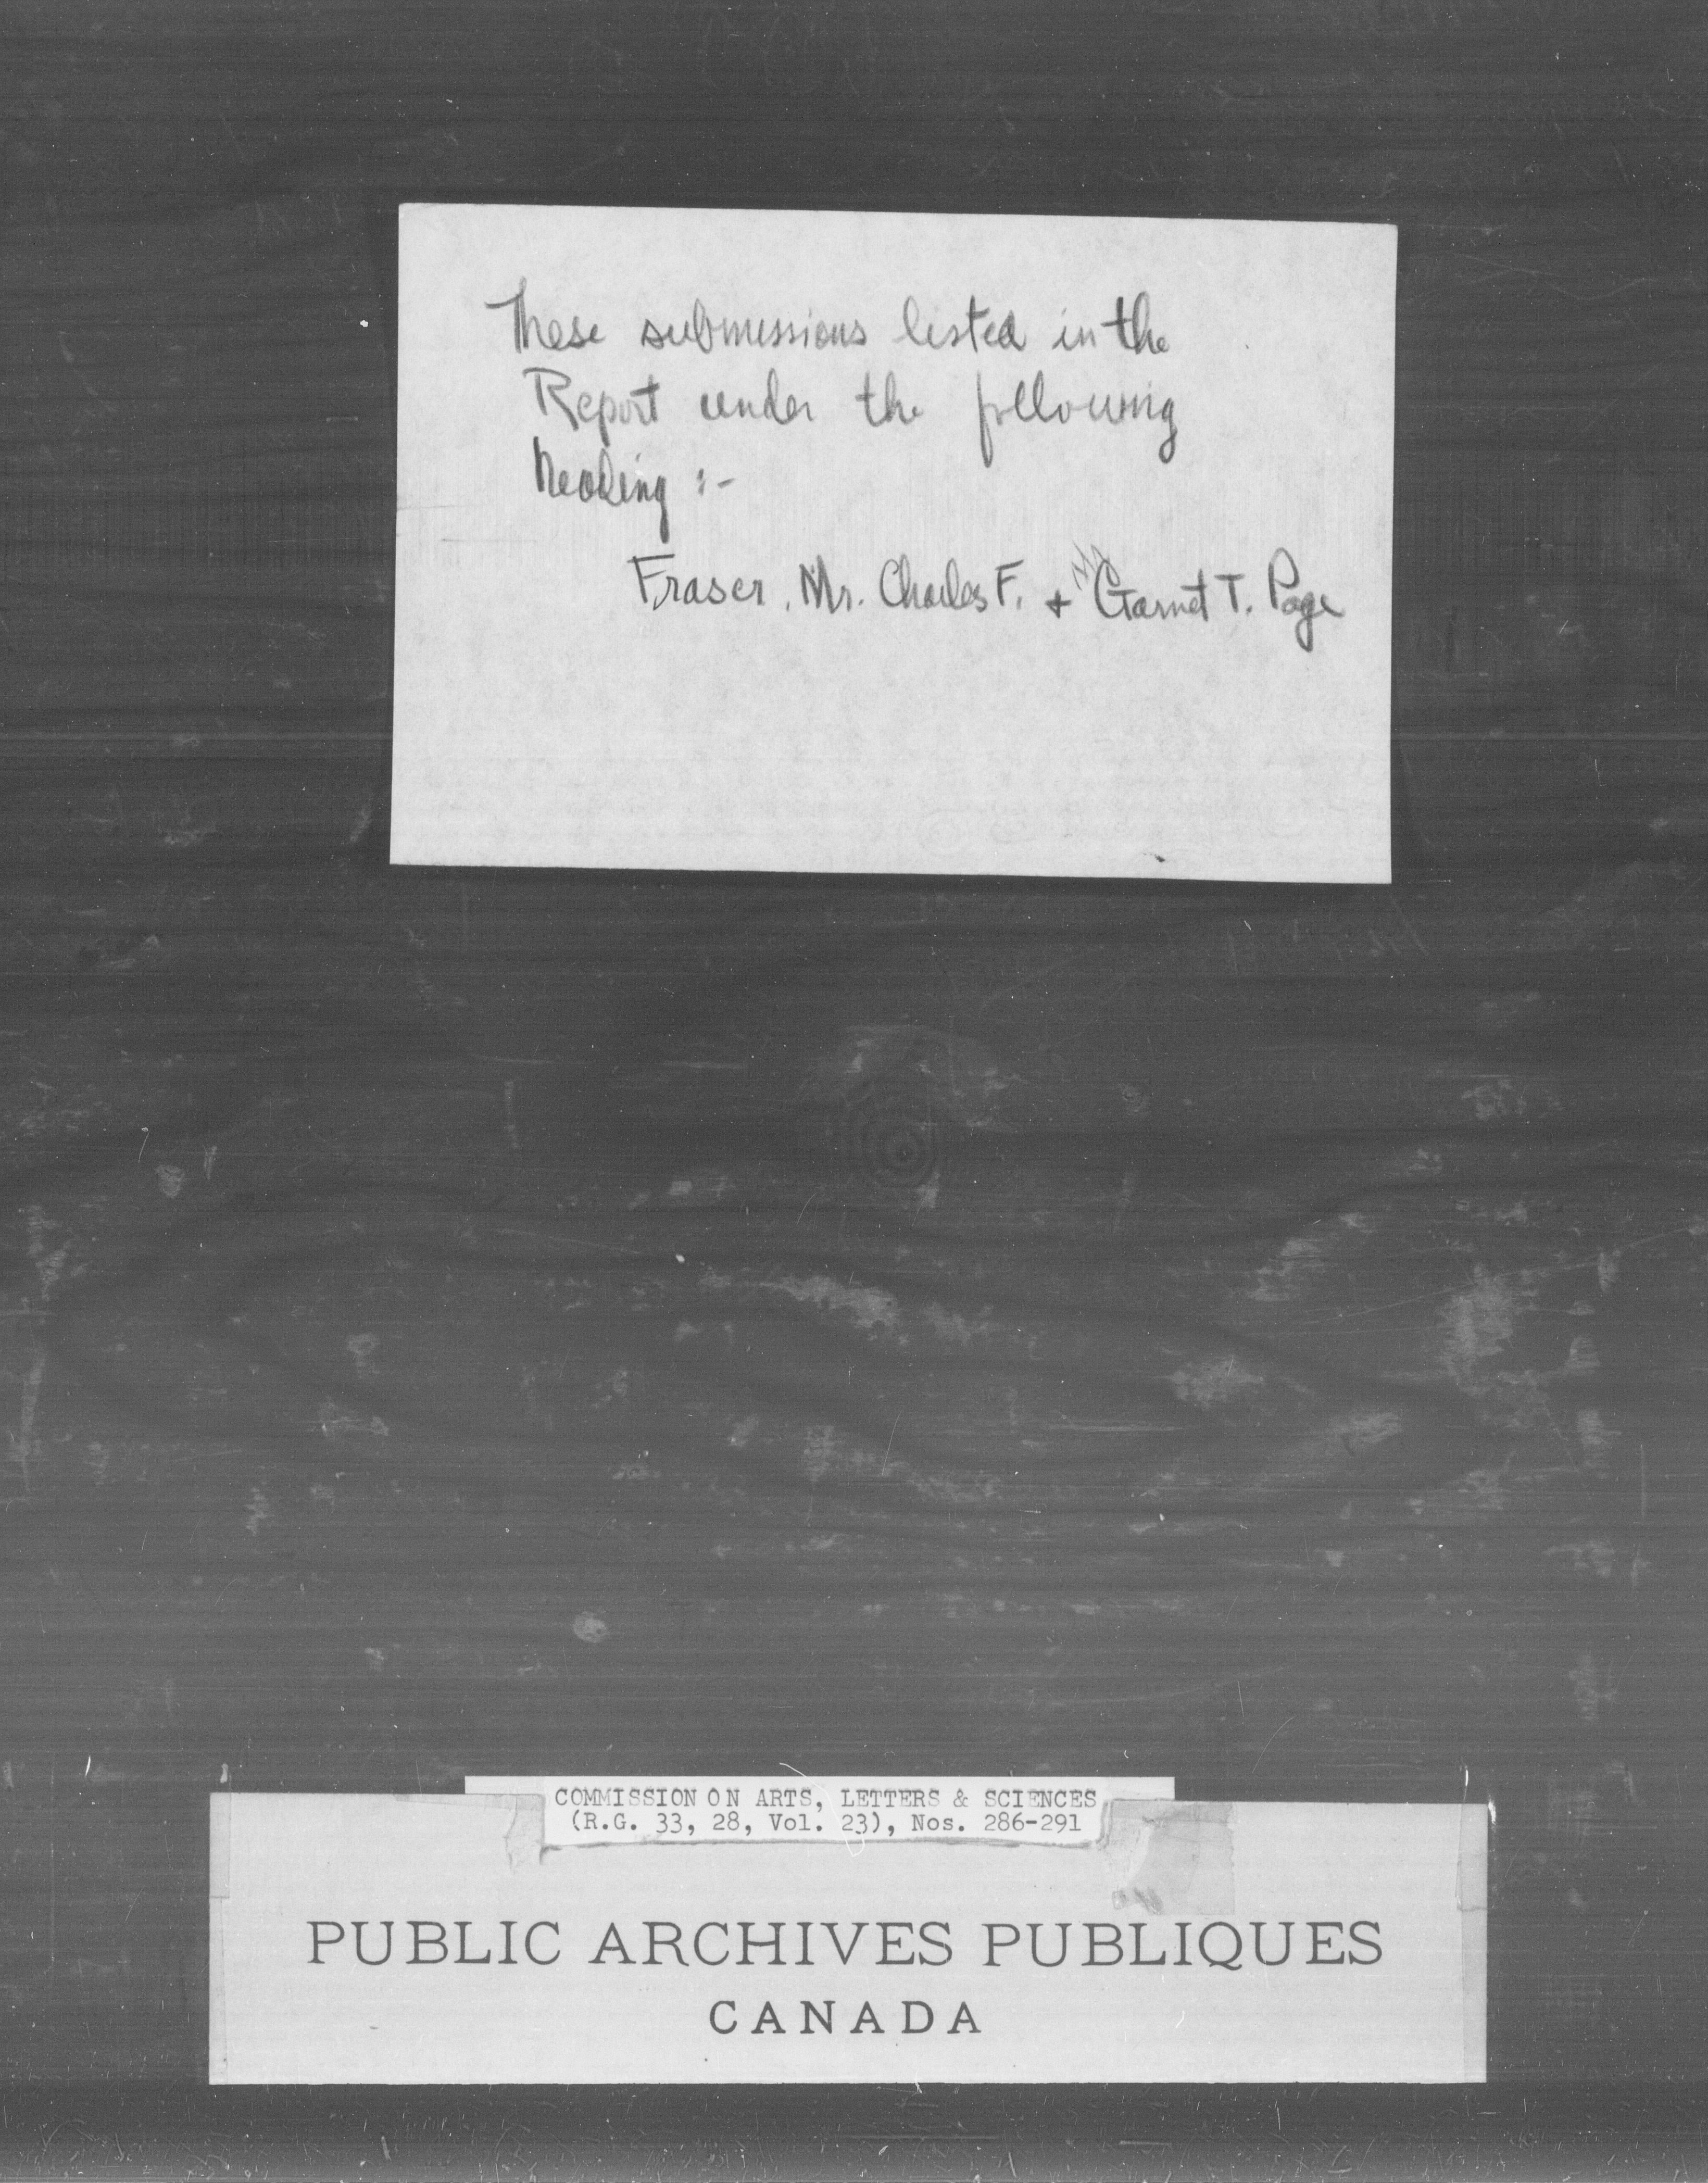 These submissions listed in the
Report under the following
heading :-
Fraser, Mr. Charles F. + Mr Garnet T. Page
COMMISSION ON ARTS, LETTERS & SCIENCES
(R.G. 33, 28, Vol. 23), Nos. 286-291
PUBLIC ARCHIVES PUBLIQUES
CANADA